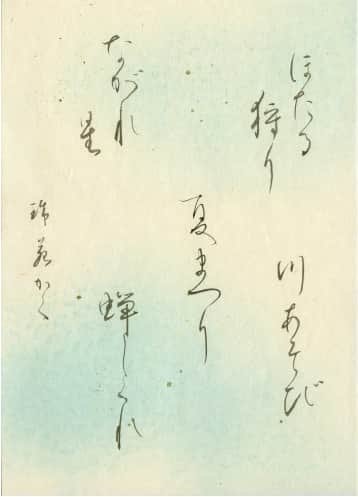 ほたる
狩り
川あそび
夏まつり
ながれ
星
蝉しぐれ
かく